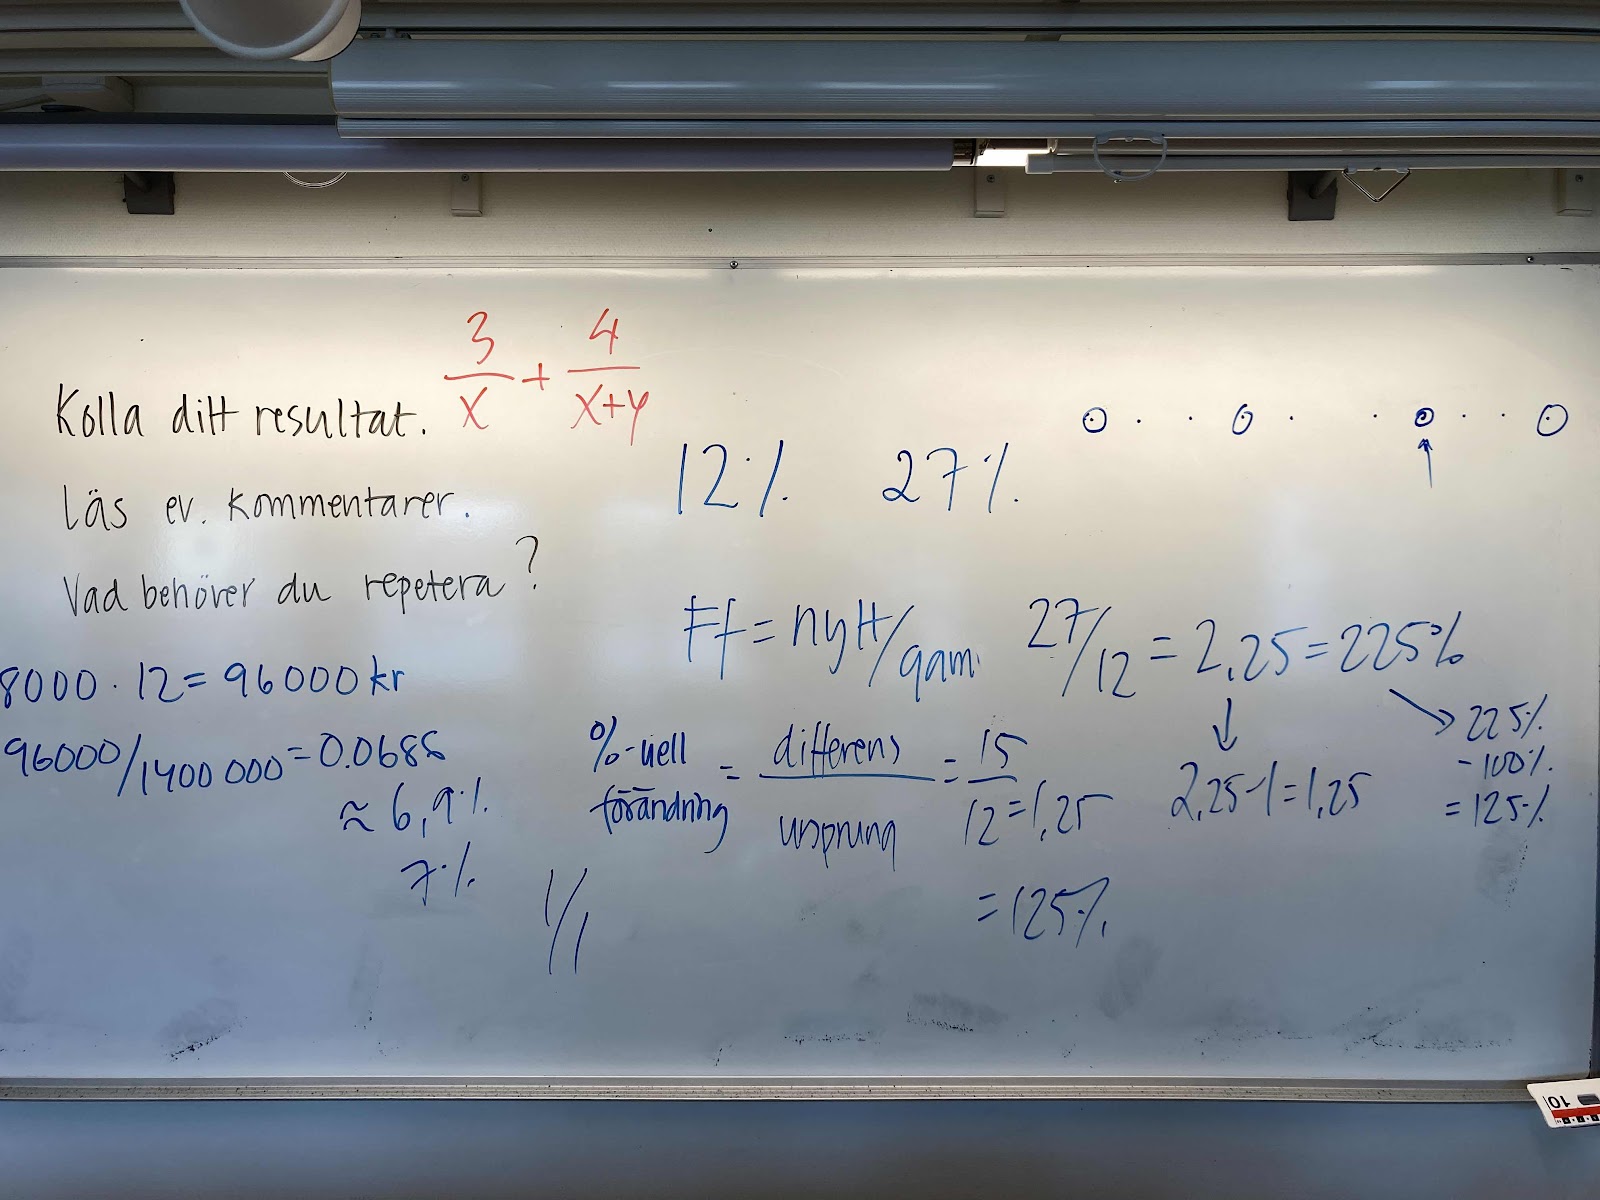 3/x + 4/(x+y)
Kolla ditt resultat.
Läs ev. kommentarer.
Vad behöver du repetera?
8000 · 12 = 96000 kr
96000/1400 000 = 0.0686
≈ 6,9%
7%
1/1
12% 27%
Ff = nytt/gam. 27/12 = 2,25 = 225%
%-uell förändring = differens/ursprung = 15/12 = 1,25
= 125%
2,25-1 = 1,25
225%
-100%
= 125%
10